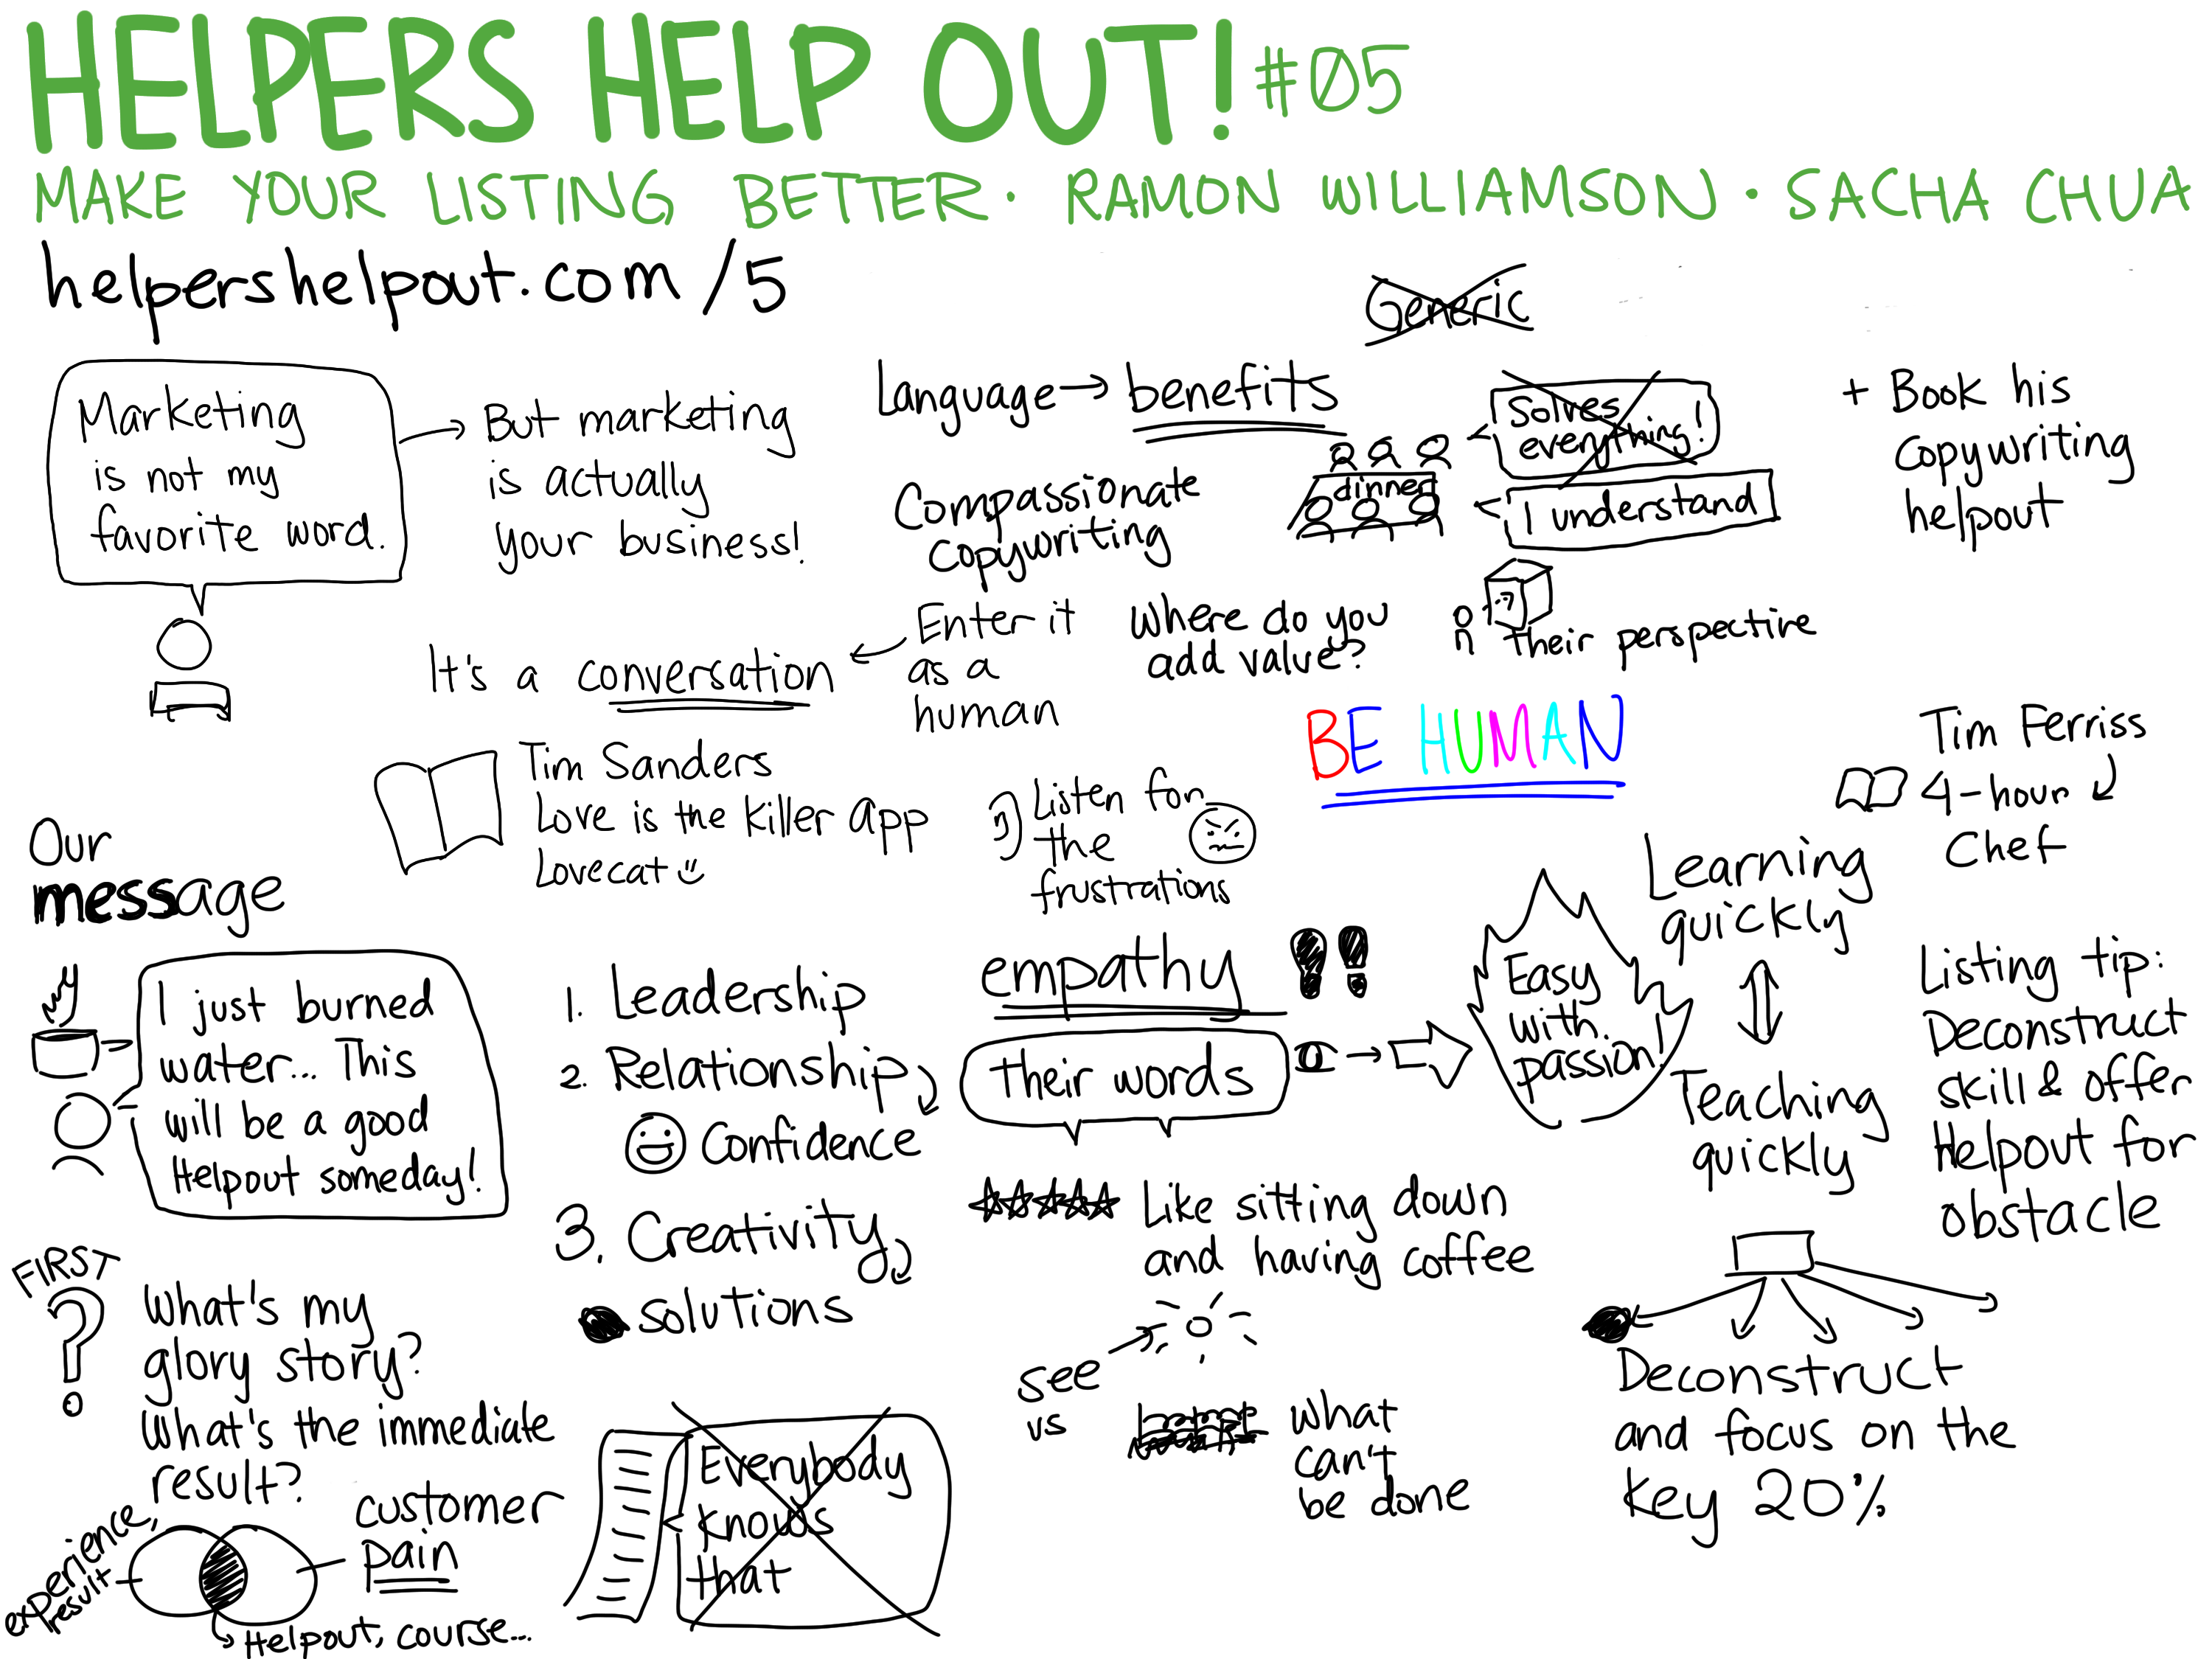 HELPERS HELP OUT! #05
MAKE YOUR LISTING BETTER · RAMON WILLIAMSON · SACHA CHUA
helpershelpout.com/5
Marketing
is not my
favorite word.
But marketing
is actually
your business!
It's a conversation
Enter it
as a
human
Tim Sanders
Love is the Killer App
Lovecat
Generic
Language → benefits
Compassionate
Copywriting
dinner
Solves
everything!
I understand
+ Book his
copywriting
helpout
Where do you
add value?
their perspective
BE HUMAN
Listen for
the
frustrations
Tim Ferriss
4-hour
Chef
Our
message
I just burned
water... This
will be a good
Helpout someday!
1. Leadership
2. Relationship
Confidence
3. Creativity
solutions
empathy !!
their words
Easy
with
passion!
Learning
quickly
Teaching
quickly
Listing tip:
Deconstruct
skill & offer
Helpout for
obstacle
Like sitting down
and having coffee
see
vs
what
can't
be done
Deconstruct
and focus on the
key 20%
FIRST
?
What's my
glory story?
What's the immediate
result?
experience,
result
customer
pain
Helpout, course...
Everybody
knows
that